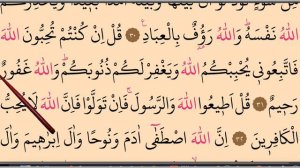 اللهُ نَفْسَهُ وَاللهُ رَؤُفٌ بِالْعِبَادِ ٣٠ قُلْ اِنْ كُنْتُمْ تُحِبُّونَ اللهَ
فَاتَّبِعُونِي يُحْبِبْكُمُ اللهُ وَيَغْفِرْلَكُمْ ذُنُوبَكُمْ وَاللهُ غَفُورٌ
رَحِيمٌ ٣١ قُلْ اَطِيعُوا اللهَ وَالرَّسُولَ فَاِنْ تَوَلَّوْا فَاِنَّ اللهَ لَا يُحِبُّ
الْكَافِرِينَ ٣٢ اِنَّ اللهَ اصْطَفٰٓى اٰدَمَ وَنُوحًا وَاٰلَ اِبْرٰهِيمَ وَاٰلَ